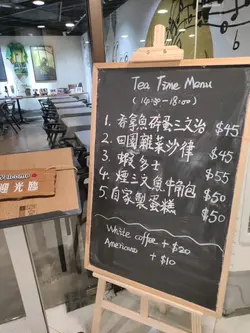 Tea Time Menu
(14:30-18:00)
1. 吞拿魚碎蛋三文治 $45
2. 田園雜菜沙律 $45
3. 蝦多士 $45
4. 煙三文魚牛角包 $50
5. 自家製蛋糕 $50
White coffee + $20
Americano + $10
Welcome
迎光臨